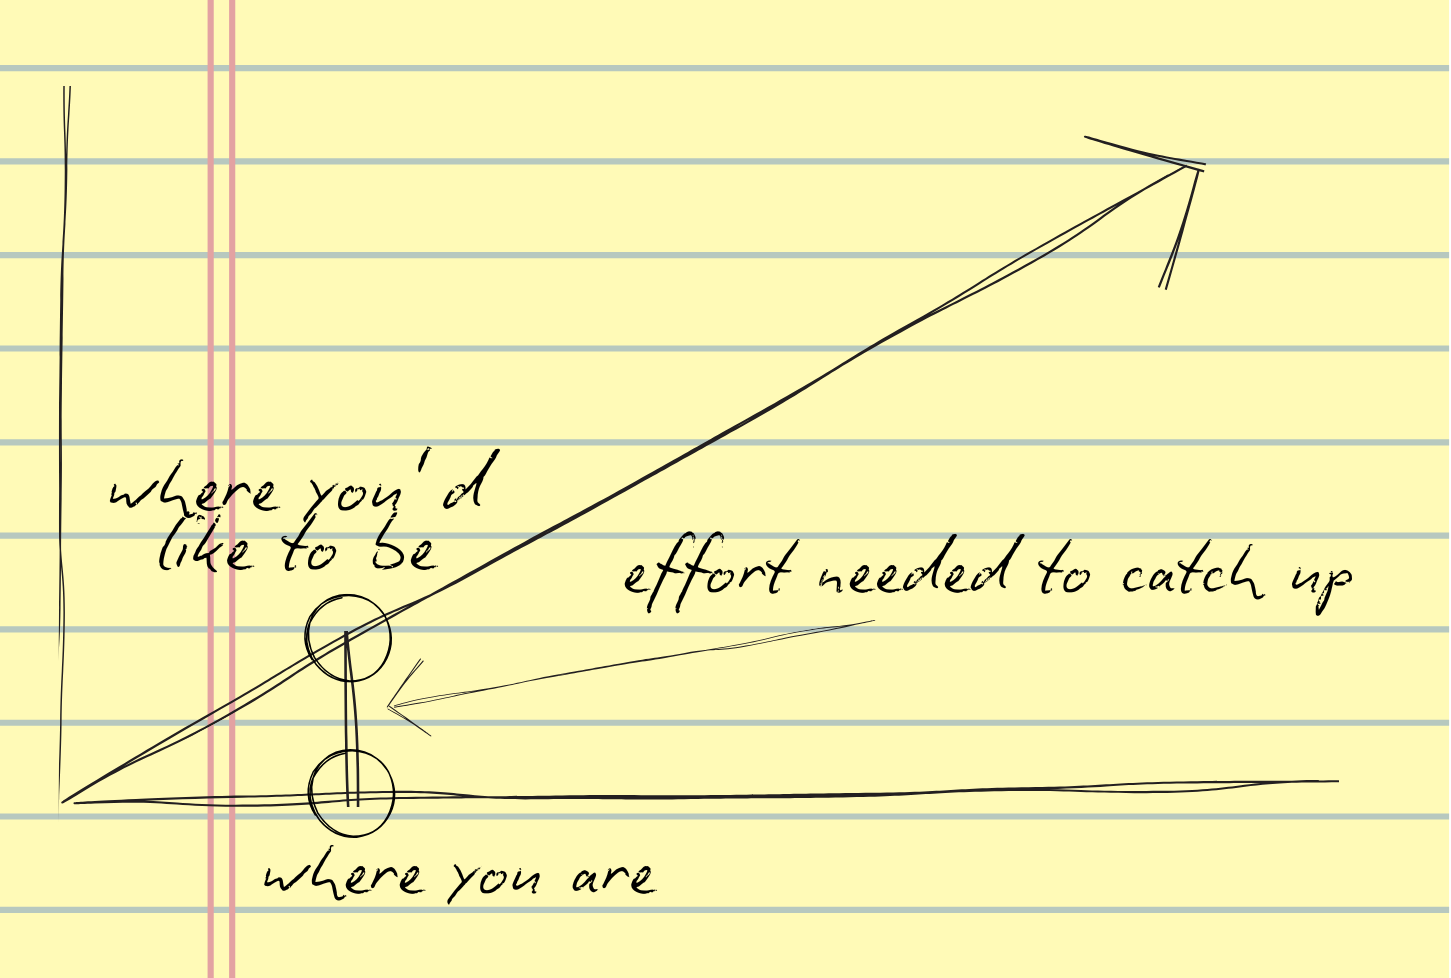 where you'd
like to be
effort needed to catch up
where you are